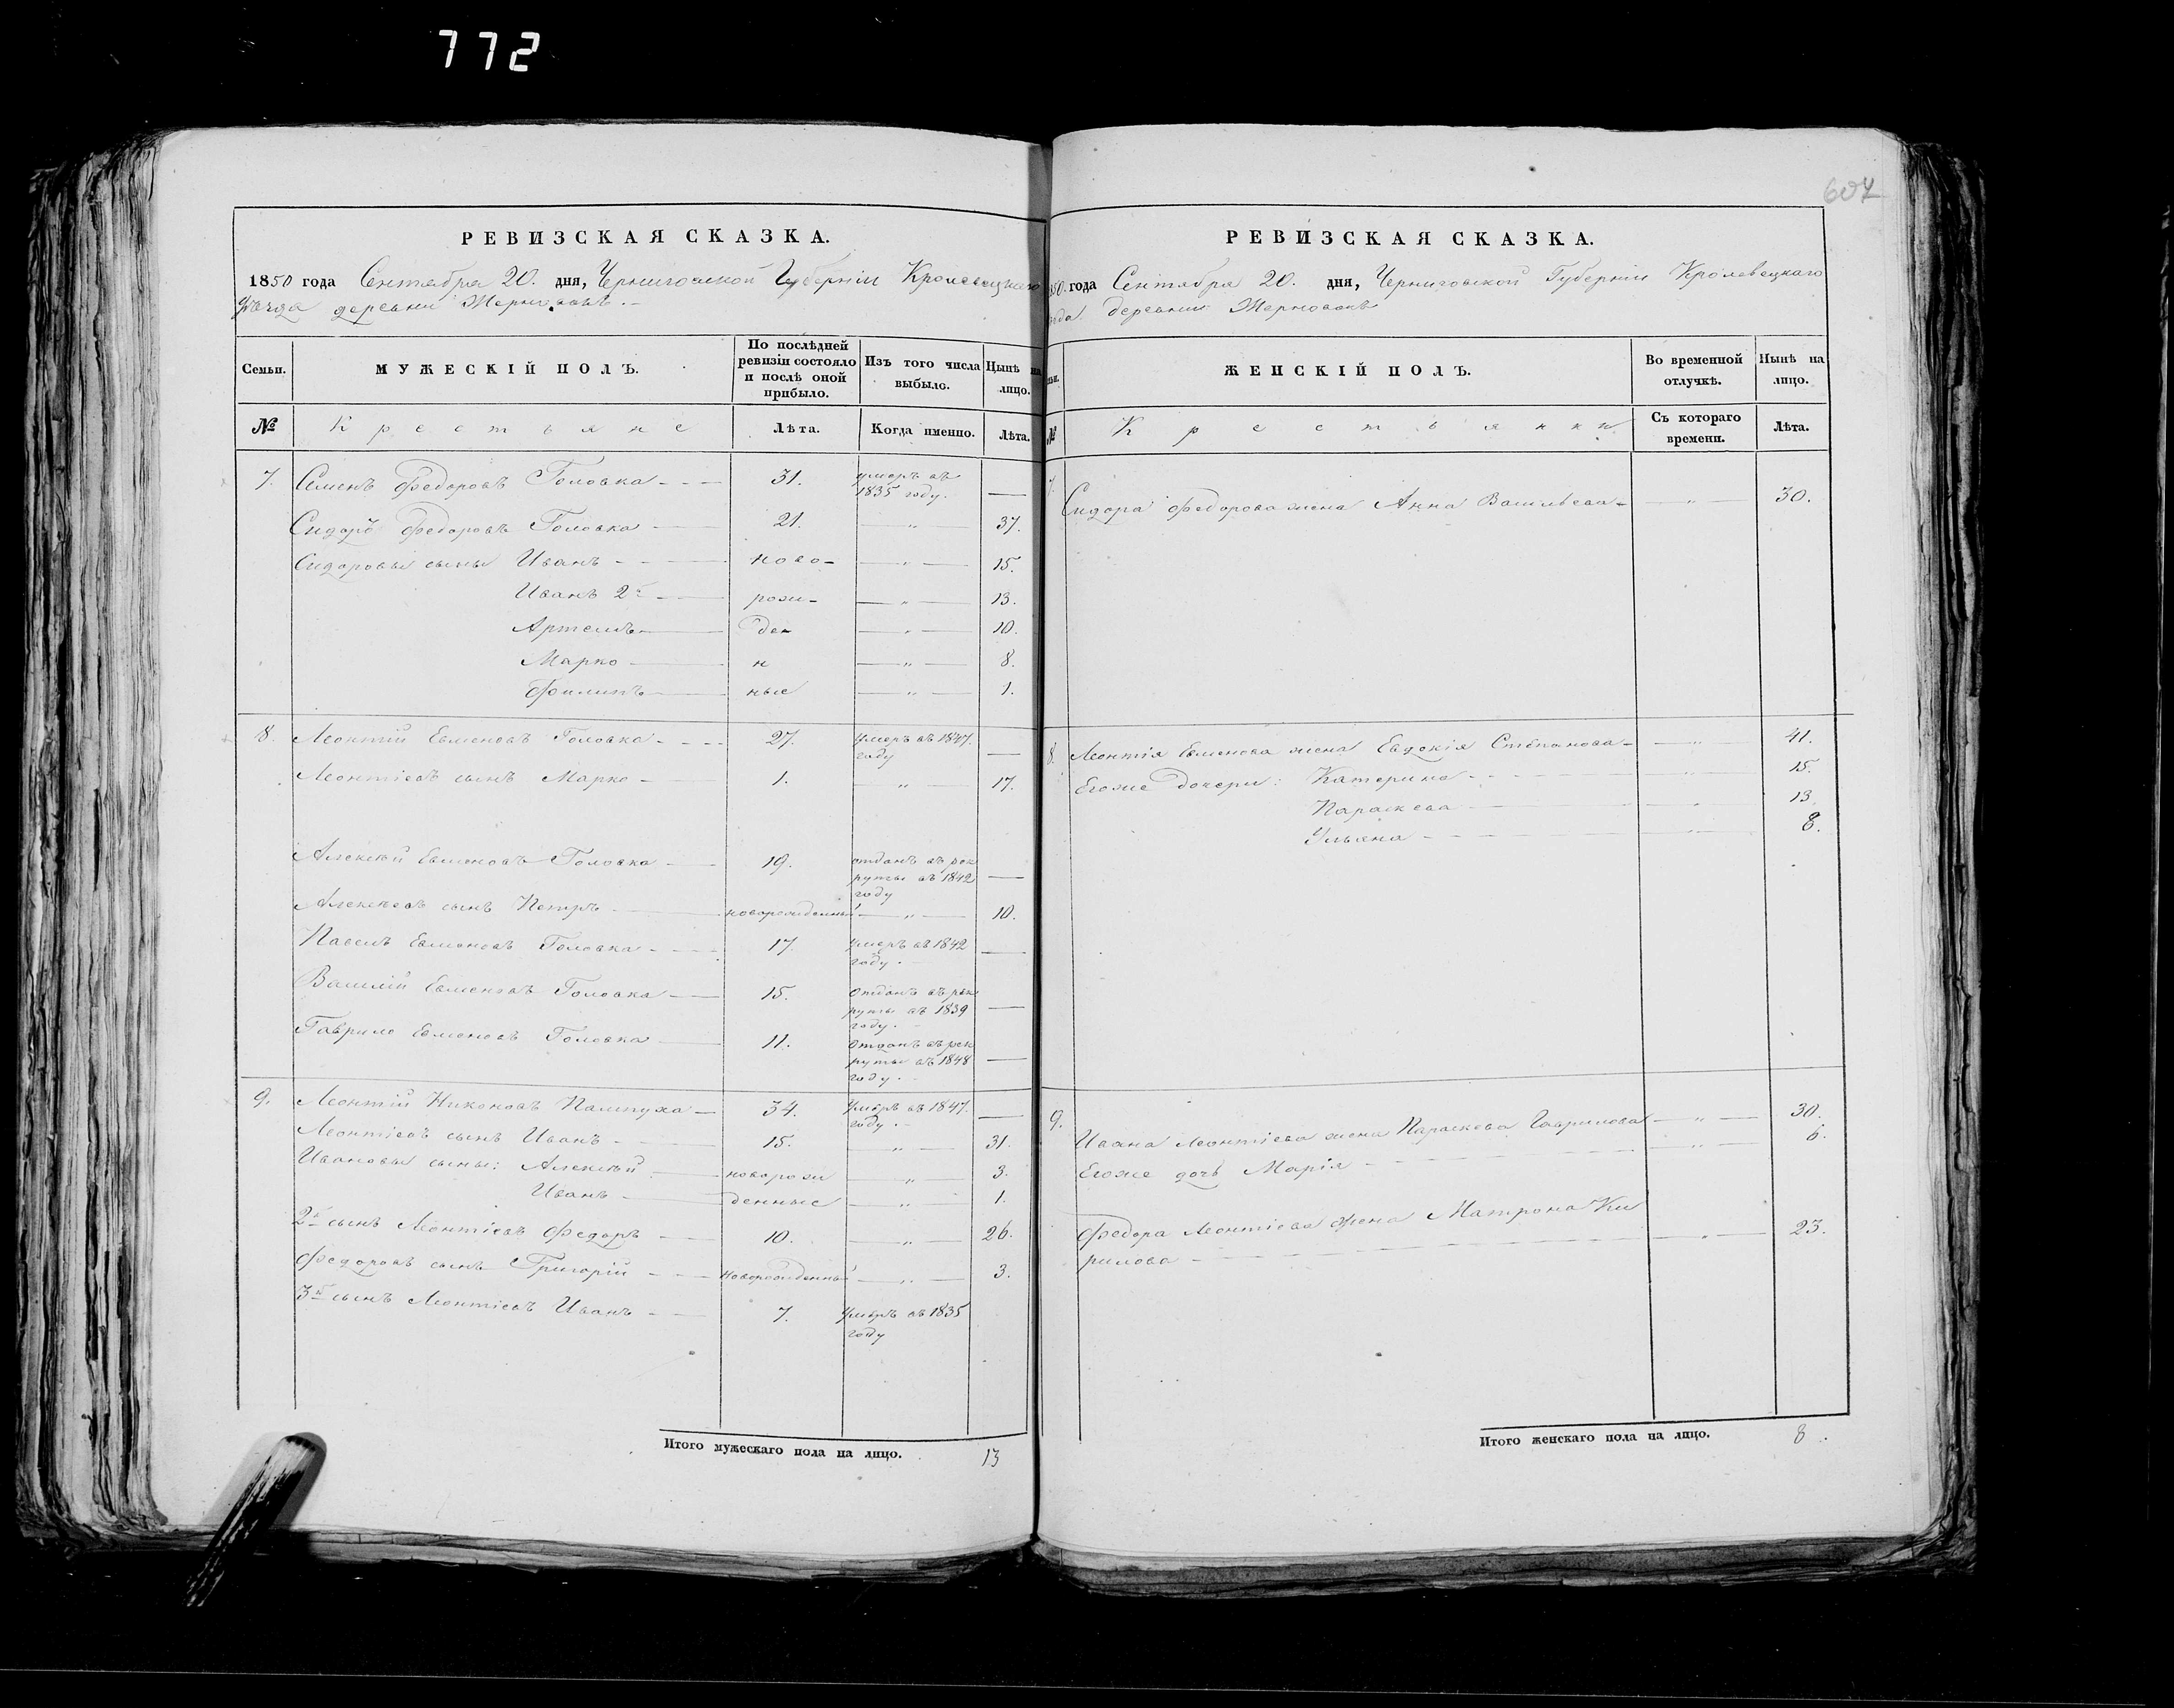 772
607
РЕВИЗСКАЯ СКАЗКА.
1850 года Сентября 20. дня, Черниговской Губерніи Кролевецкаго
уѣзда деревни Жерновокъ.
Семьи.
МУЖЕСКІЙ ПОЛЪ.
По послѣдней ревизіи состояло и послѣ оной прибыло.
Изъ того числа выбыло.
Нынѣ на лицо.
№
Крестьяне
Лѣта.
Когда именно.
Лѣта.
7. Семенъ Федоровъ Головка 31. умеръ въ 1835 году. —
Сидоръ Федоровъ Головка 21. „ 37.
Сидоровы сыны Иванъ ново- „ 15.
Иванъ 2й рож- „ 13.
Артемъ де- „ 10.
Марко н „ 8.
Филипъ ные „ 1.
8. Леонтий Евменовъ Головка 27. умеръ въ 1847. году —
Леонтіевъ сынъ Марко 1. „ 17.
Алексѣй Евменовъ Головка 19. отданъ въ рек
руты въ 1842
году —
Алексѣевъ сынъ Петръ новорожденный „ 10.
Павелъ Евменовъ Головка 17. умеръ въ 1842
году. —
Василій Евменовъ Головка 15. отданъ въ рек
руты въ 1839
году. —
Гаврило Евменовъ Головка 11. отданъ въ рек
руты въ 1848
году. —
9. Леонтій Никоновъ 34. умеръ въ 1847.
году. —
Леонтіевъ сынъ Иванъ 15. „ 31.
Ивановы сыны: Алексѣй новорож „ 3.
Иванъ денные „ 1.
2й сынъ Леонтіевъ Федоръ 10. „ 26.
Федоровъ сынъ Григорій новорожденный „ 3.
3й сынъ Леонтіевъ Иванъ 7. умеръ въ 1835
году
Итого мужескаго пола на лицо. 13
РЕВИЗСКАЯ СКАЗКА.
850. года Сентября 20. дня, Черниговской Губерніи Кролевецкаго
деревни Жерновокъ
ЖЕНСКІЙ ПОЛЪ.
Во временной отлучкѣ.
Нынѣ на лицо.
№
Крестьянки
Съ котораго времени.
Лѣта.
7. Сидора Федорова жена Анна Васильева „ 30.
8. Леонтія Евменова жена Евдокія Степанова „ 41.
Егоже дочери: Катерина „ 15.
Параскева „ 13.
Ульяна „ 8.
9. Ивана Леонтіева жена Параскева Гаврилова „ 30.
Егоже дочь Марія „ 6.
Федора Леонтіева жена Матрона Ки
рилова „ 23.
Итого женскаго пола на лицо. 8.